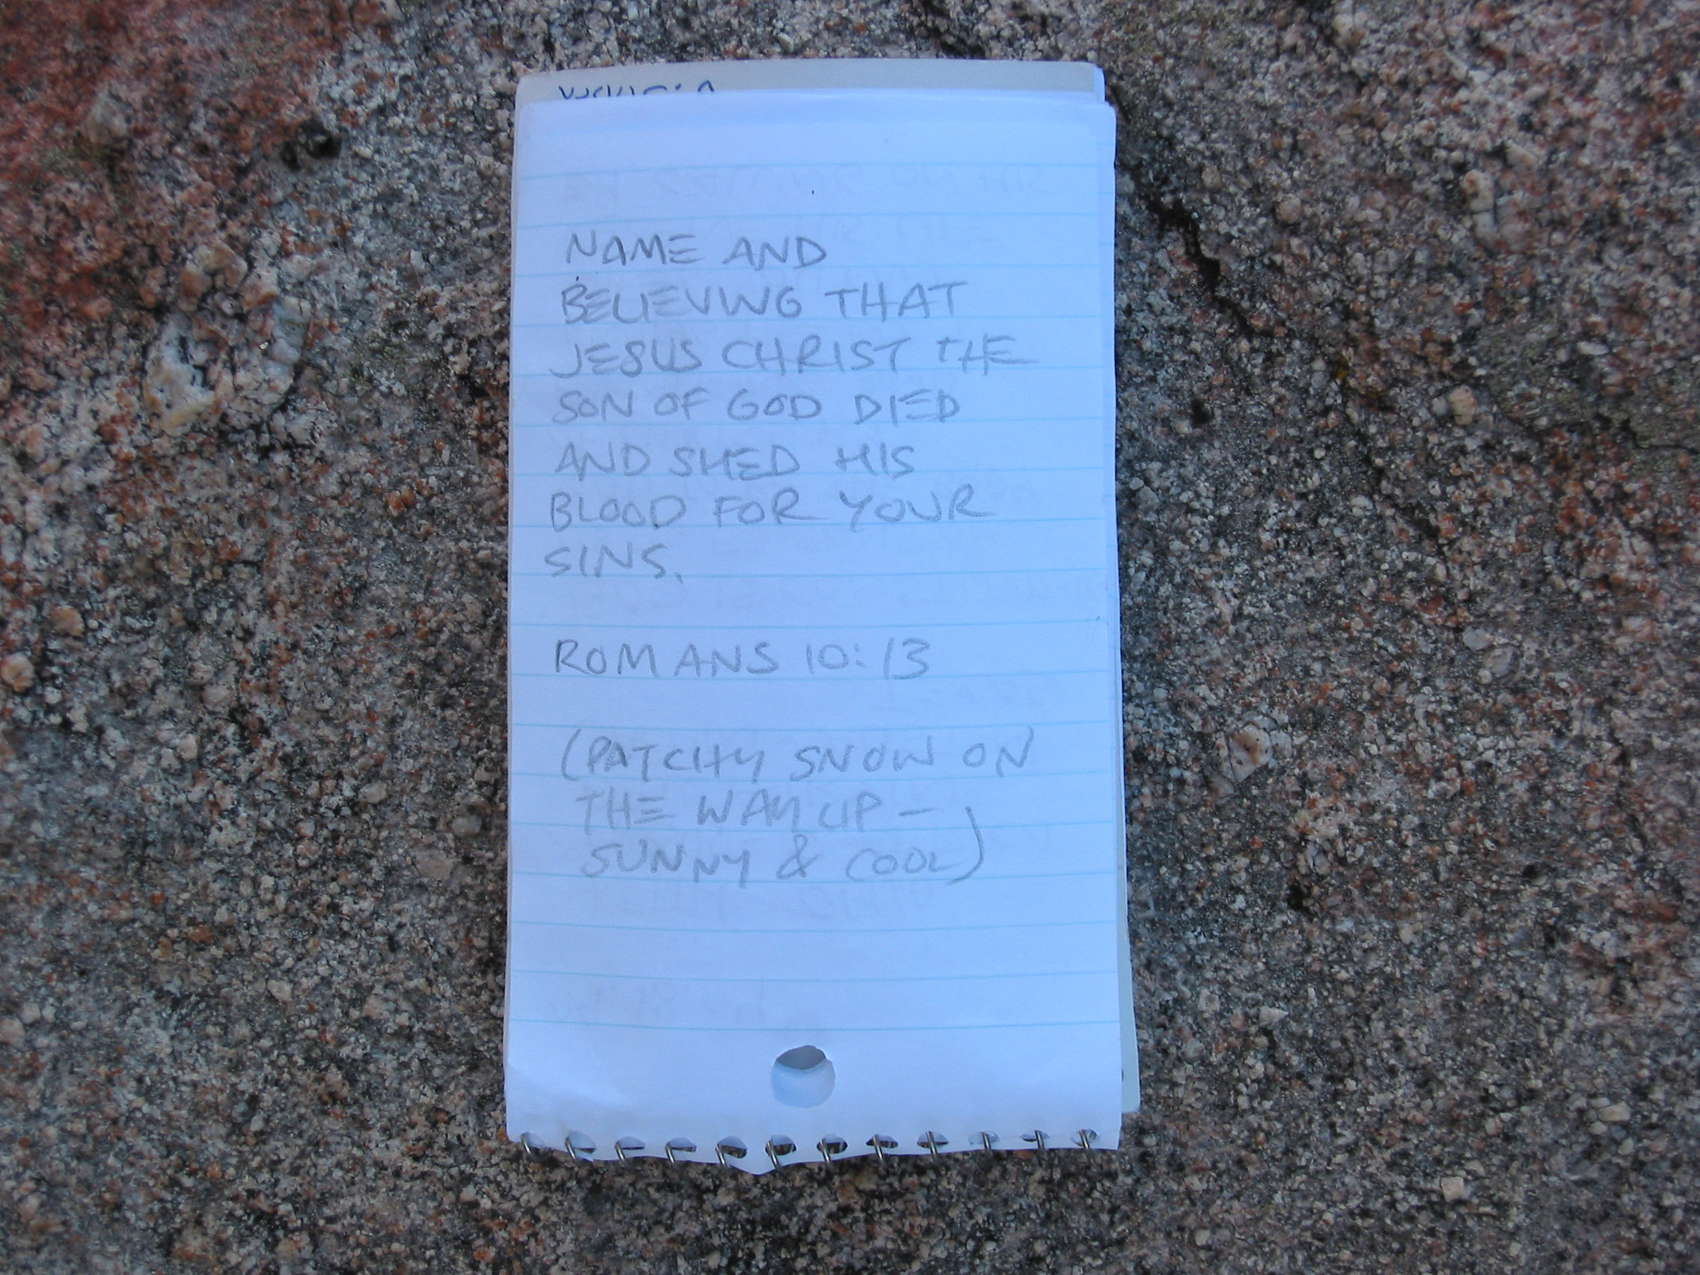 NAME AND
BELIEVING THAT
JESUS CHRIST THE
SON OF GOD DIED
AND SHED HIS
BLOOD FOR YOUR
SINS.
ROMANS 10:13
(PATCHY SNOW ON
THE WAY UP –
SUNNY & COOL)